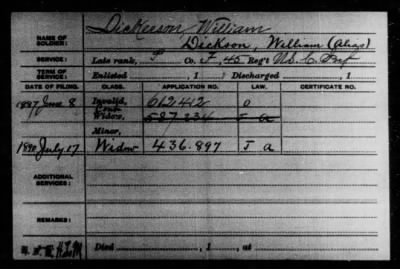 NAME OF SOLDIER: Dickerson William
Dickson, William (Alias)
SERVICE: Late rank, P Co. F, 45 Reg't U.S.C. Inf
TERM OF SERVICE: Enlisted , 1 Discharged , 1
DATE OF FILING. CLASS. APPLICATION NO. LAW. CERTIFICATE NO.
1887 June 8 Invalid, 612412 O
Widow, 587,234 J a
Minor,
1890 July 17 Widow 436.897 J a
ADDITIONAL SERVICES:
REMARKS:
Died , 1 , at